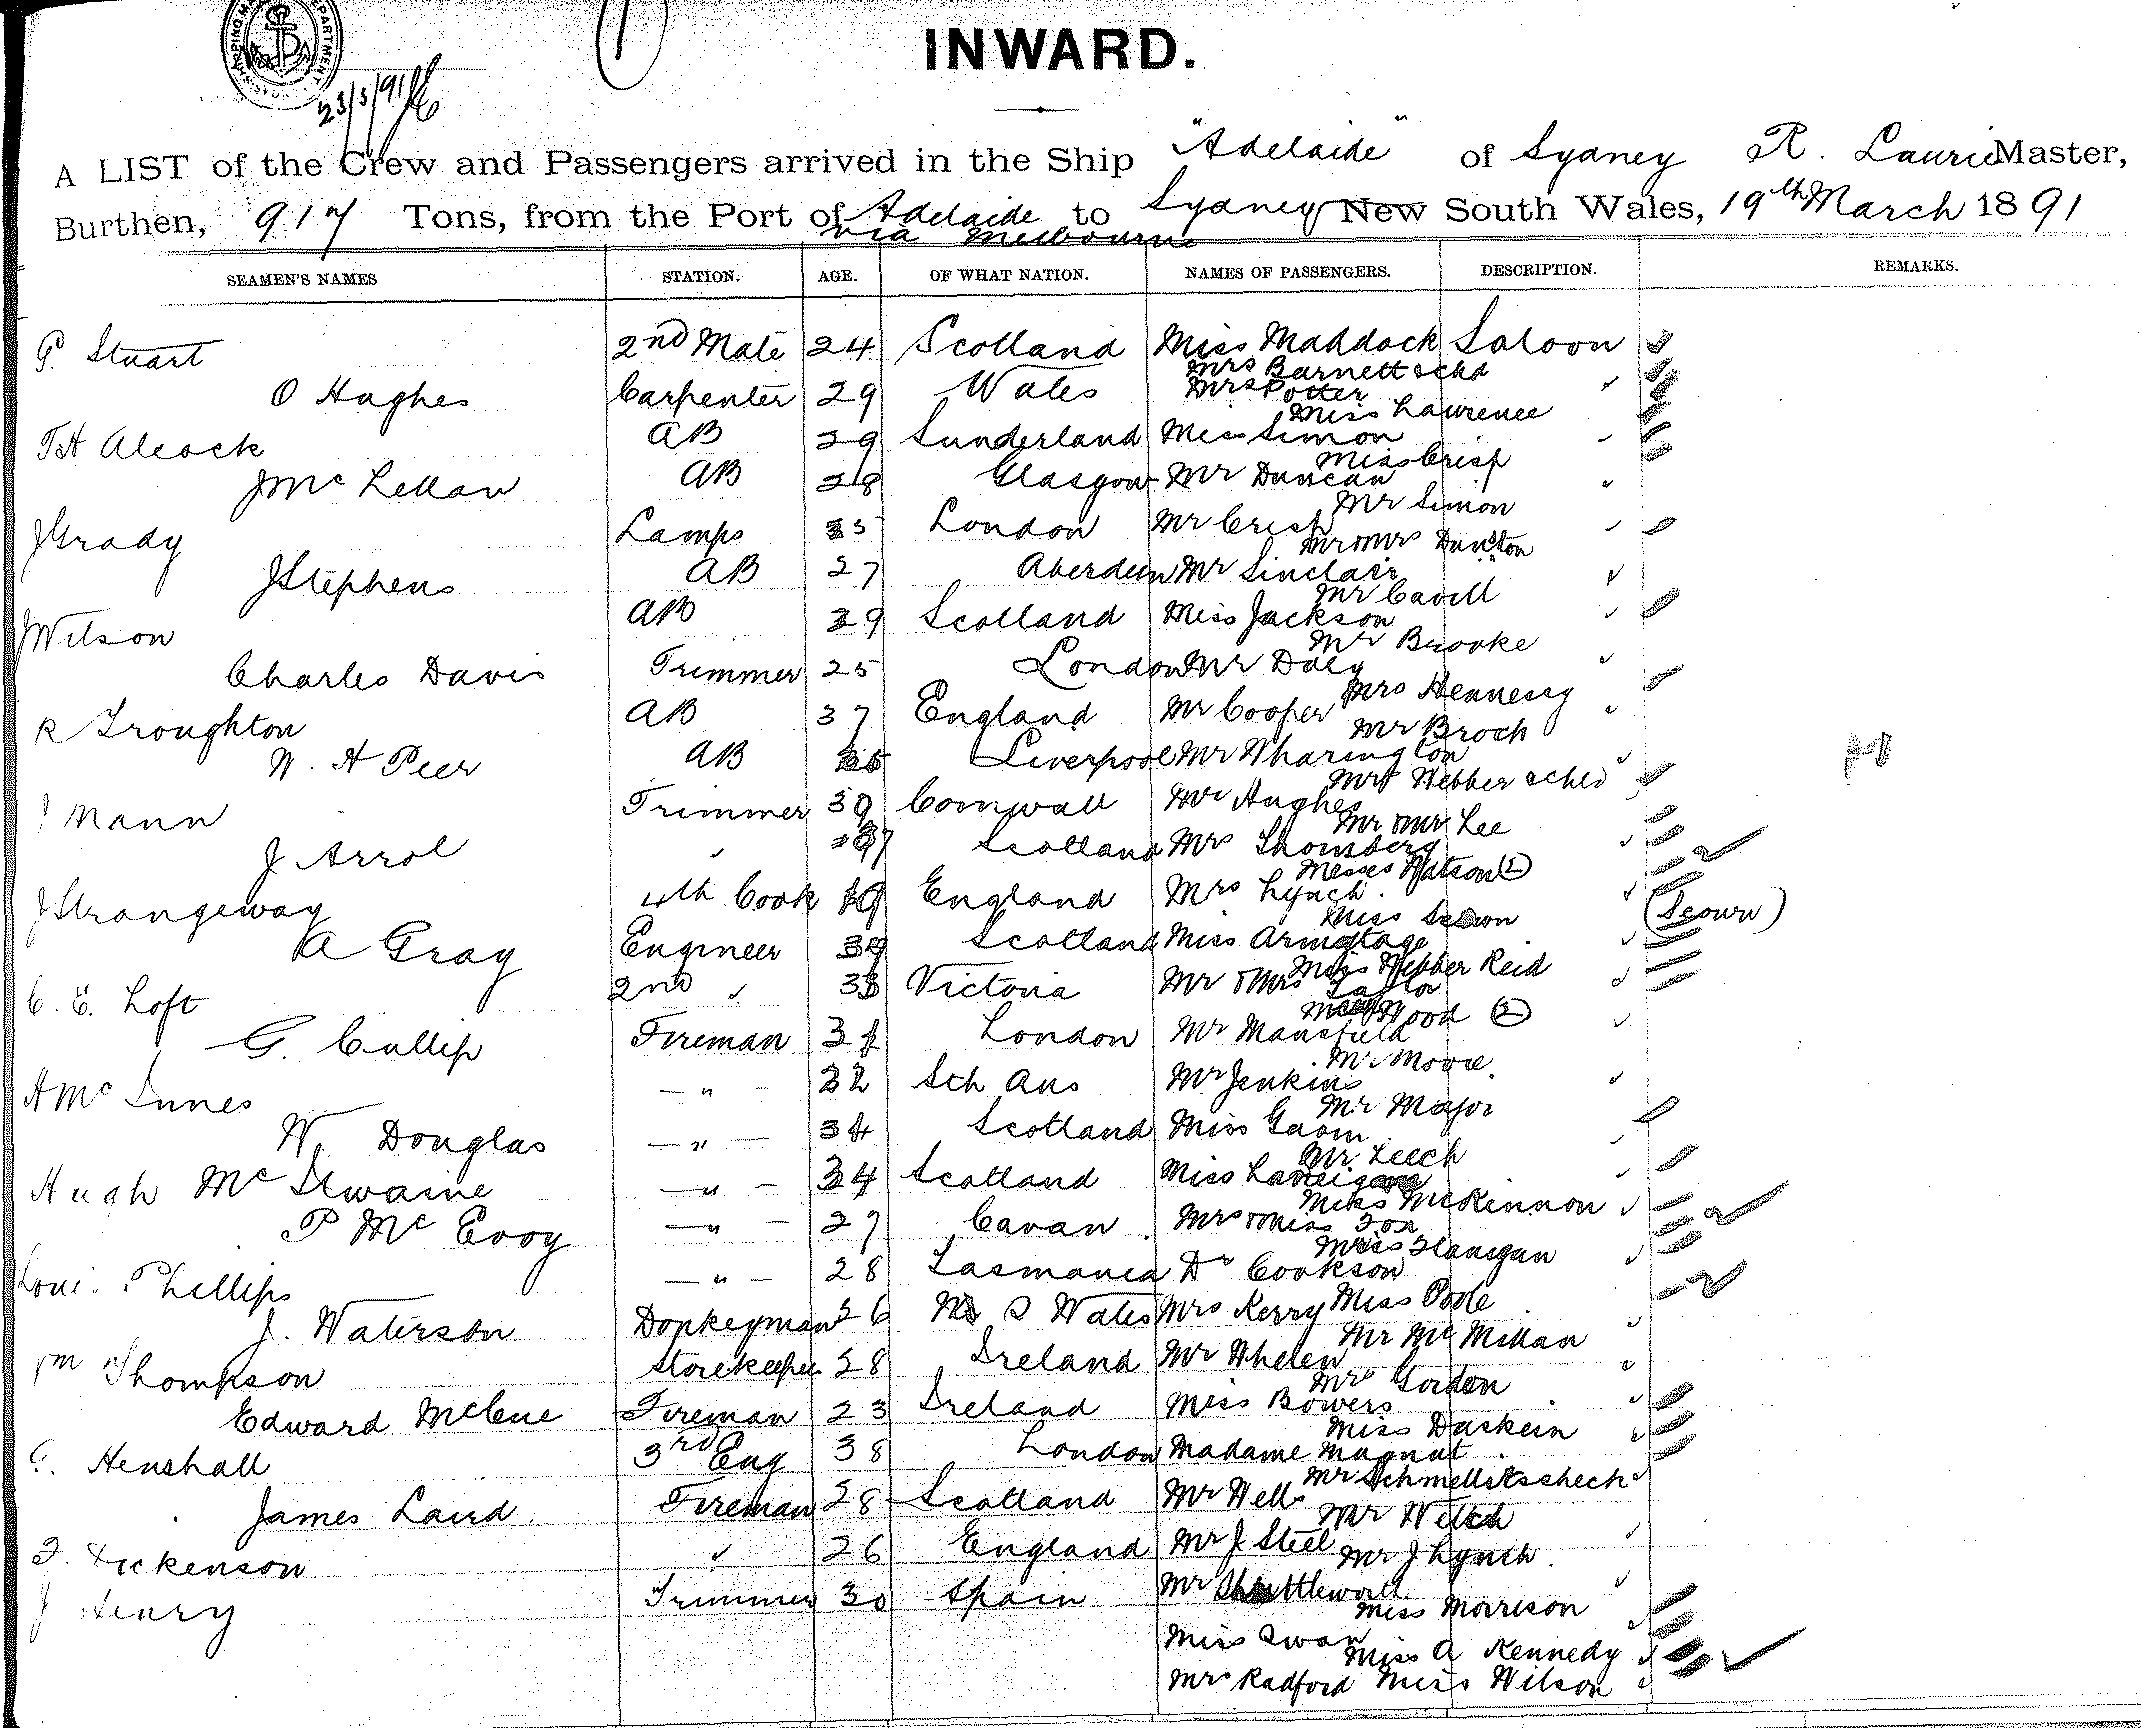 SHIPPING MA DEPARTMENT
23/3/91
INWARD.
A LIST of the Crew and Passengers arrived in the Ship "Adelaide" of Sydney R. Laurie Master,
Burthen, 917 Tons, from the Port of Adelaide to Sydney New South Wales, 19th March 1891
via Melbourne
SEAMEN'S NAMES STATION. AGE. OF WHAT NATION. NAMES OF PASSENGERS. DESCRIPTION. REMARKS.
P. Stuart 2nd Mate 24 Scotland Miss Maddock Saloon
Mrs Barnett & chd
O Hughes Carpenter 29 Wales Mrs Potter
Miss Laurence
TH Alcock AB 29 Sunderland Miss Simon
Miss Crisp
J Mc Lellan AB 28 Glasgow Mr Duncan
Mr Simon
J Grady Lamps London Mr Crisp
Mr & Mrs Dunston
J Stephens AB 27 Aberdeen Mr Sinclair
Mr Cavill
J Wilson AB 39 Scotland Miss Jackson
Mr Brooke
Charles Davis Trimmer 25 London Mr Daly
Mrs Hennessy
R Troughton AB 37 England Mr Cooper
Mr Broch
W. H Peer AB Liverpool Mr Wharington
Mrs Webber & chld
J Mann Trimmer 39 Cornwall Mr Hughes
Mr & Mrs Lee
J. Arrol 37 Scotland Mrs Shomberg
Messrs Watson (2)
J Strangeway 4th Cook 19 England Mrs Lynch
Miss (Scown)
A Gray Engineer 39 Scotland Miss Armatage
Miss Webber Reid
C. E. Loft 2nd " 33 Victoria Mr & Mrs Taylor
Wood (2)
G. Cullip Fireman London Mr Mansfield
Mr Moore
A Mc Innes " 32 Sth Aus Mr Jenkins
Mr Major
W. Douglas " 34 Scotland Miss
Mr Leech
Hugh Mc Ilwaine " 34 Scotland Miss
Miss McKinnon
P Mc Evoy " 27 Cavan Mrs & Miss Fox
Miss Flanigan
Loui. Phillips " 28 Tasmania Dr Cookson
Miss Poole
J. Waterson Donkeyman 26 N S Wales Mrs Kerry
Mr Mc Millan
Wm Thompson Storekeeper 28 Ireland Mr Whelen
Mrs Gordon
Edward McCue Fireman 23 Ireland Miss Bowers
Miss Daskein
C. Henshall 3rd Eng 38 London Madame Magnat
Mr Schmellitscheck
James Laird Fireman 28 Scotland Mr Wells
Mr Welch
F. Dickenson " 26 England Mr J Steel
Mr J Lynch
J Henry Trimmer 30 Spain Mr Shuttleworth
Miss Morrison
Miss Swan
Miss A Kennedy
Mrs Radford Miss Wilson